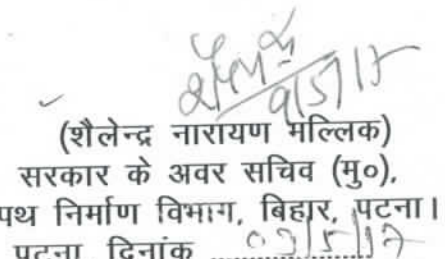 शैलेन्द्र
9/5/17
(शैलेन्द्र नारायण मल्लिक)
सरकार के अवर सचिव (मु०),
पथ निर्माण विभाग, बिहार, पटना।
पटना, दिनांक 09/5/17